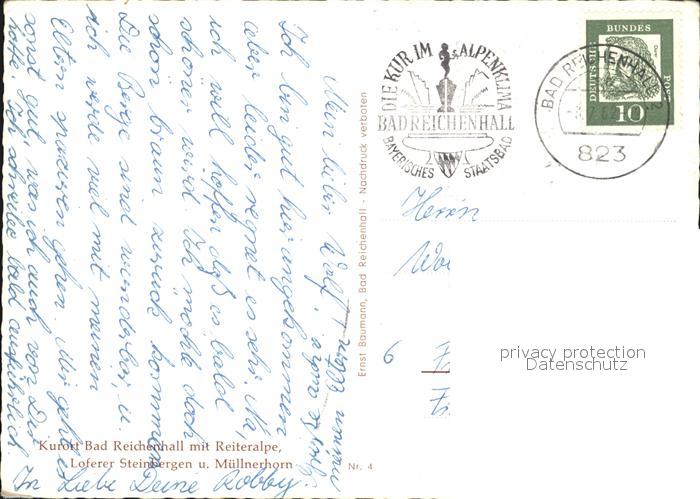 Mein lieber Wolf!
Ich bin gut hier angekommen
aber leider regnet es sehr. Na,
ich will hoffen daß es bald
schöner wird. Ich möchte doch
schön braun zurück kommen
Die Berge sind wunderbar, u.
ich werde viel mit meinen
Eltern spazieren gehen. Mir geht es
sonst gut, was ich auch von Dir
hoffe. Ich schreibe bald ausführlich
In Liebe Deine Robby!
Kurort Bad Reichenhall mit Reiteralpe,
Loferer Steinbergen u. Müllnerhorn
Nr. 4
Ernst Baumann, Bad Reichenhall - Nachdruck verboten
DIE KUR IM ALPENKLIMA
BAD REICHENHALL
BAYERISCHES STAATSBAD
BAD REICHENHALL
823
DEUTSCHE
BUNDES
POST
10
Herrn
6
privacy protection
Datenschutz